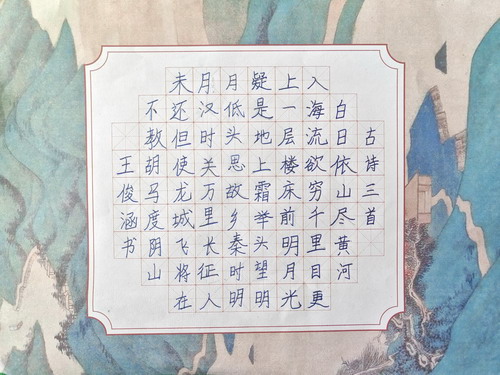 古诗三首
白日依山尽黄河
入海流欲穷千里目更
上一层楼床前明月光
疑是地上霜举头望明
月低头思故乡秦时明
月汉时关万里长征人
未还但使龙城飞将在
不教胡马度阴山
王俊涵书